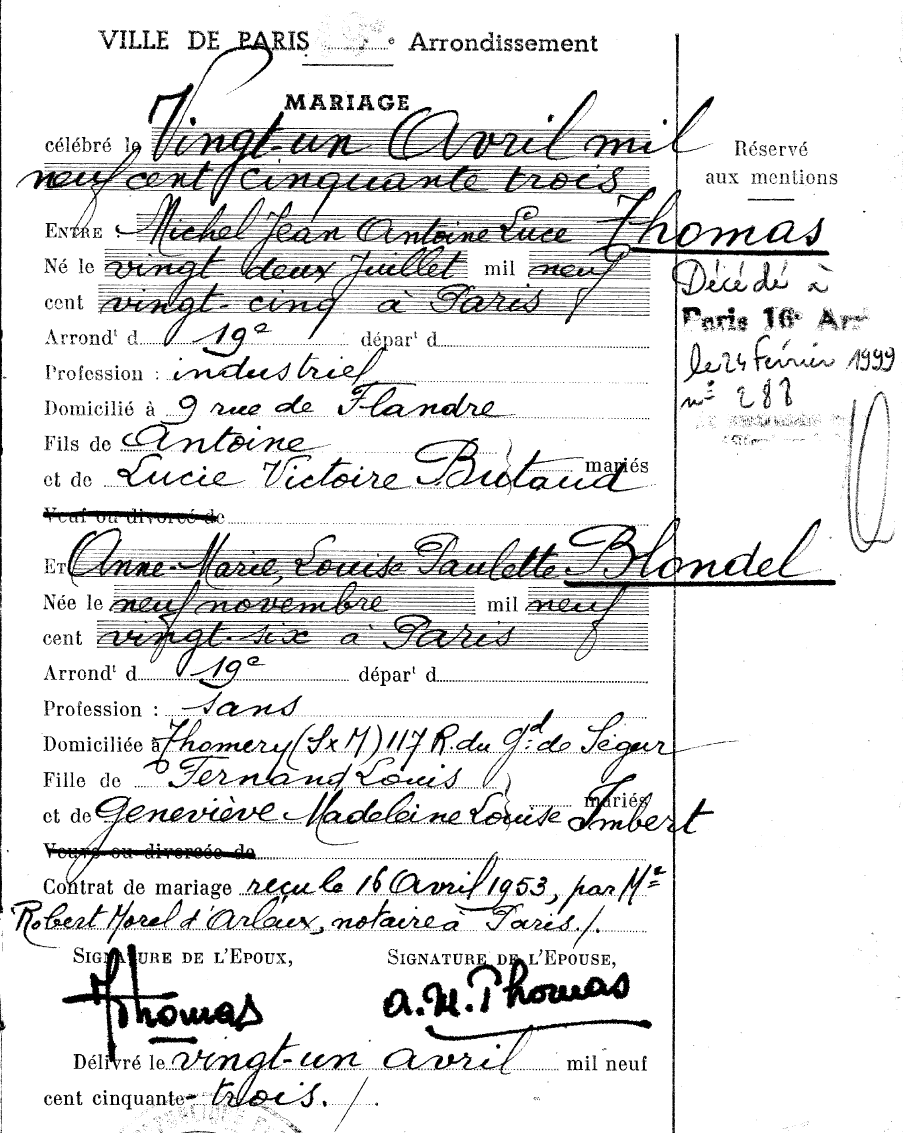 VILLE DE PARIS e Arrondissement
MARIAGE
célébré le Vingt-un Avril mil
neuf cent cinquante trois
Réservé
aux mentions
ENTRE : Michel Jean Antoine Luce Thomas
Né le vingt deux Juillet mil neuf
cent vingt-cinq à Paris
Arrondt d 19e départ d
Profession : industriel
Domicilié à 9 rue de Flandre
Fils de Antoine
et de Lucie Victoire Butaud mariés
Veuf ou divorcé de
Décédé à
Paris 16e Arrt
le 24 février 1999
n° 288
ET Anne-Marie, Louise Paulette Blondel
Née le neuf novembre mil neuf
cent vingt-six à Paris
Arrondt d 19e départ d
Profession : sans
Domiciliée à Thomery (S x M) 117 R. du Gd. de Ségur
Fille de Fernand Louis
et de Geneviève Madeleine Louise Imbert mariés
Veuve ou divorcée de
Contrat de mariage reçu le 16 Avril 1953, par Me
Robert Morel d'Arleux, notaire à Paris./.
SIGNATURE DE L'EPOUX, SIGNATURE DE L'EPOUSE,
Thomas a.M.Thomas
Délivré le vingt-un avril mil neuf
cent cinquante-trois./.